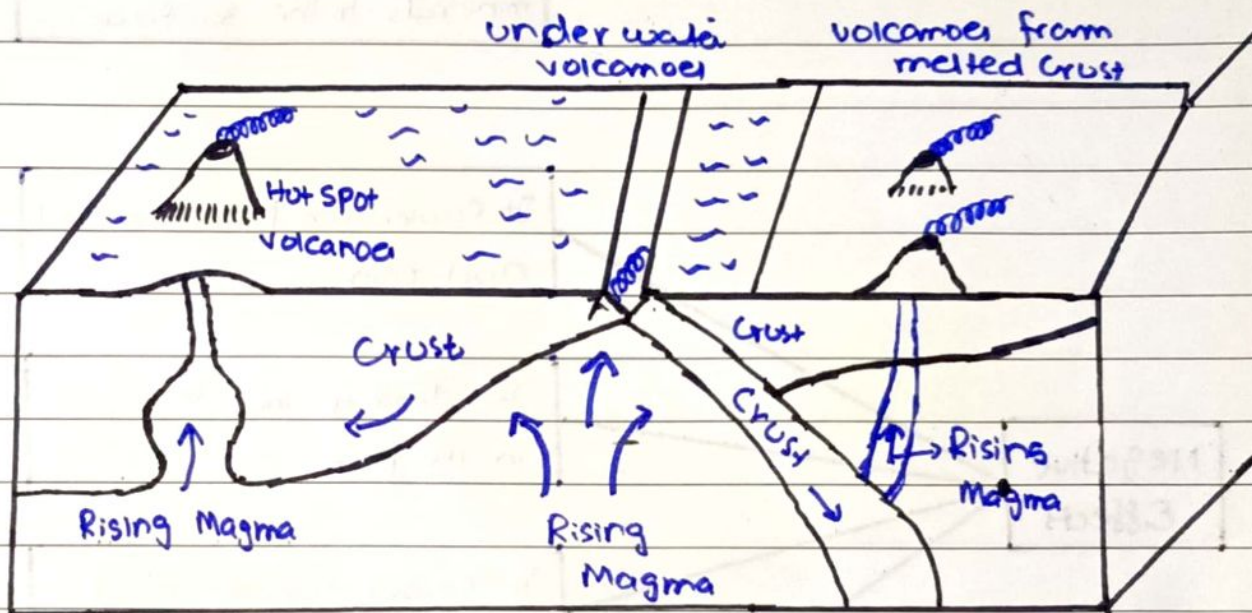 under wate
volcanoes
volcanoes from
melted Crust
Hot Spot
volcanoes
Crust
Crust
Crust
Rising Magma
Rising
Magma
Rising
Magma
Negative
Effects